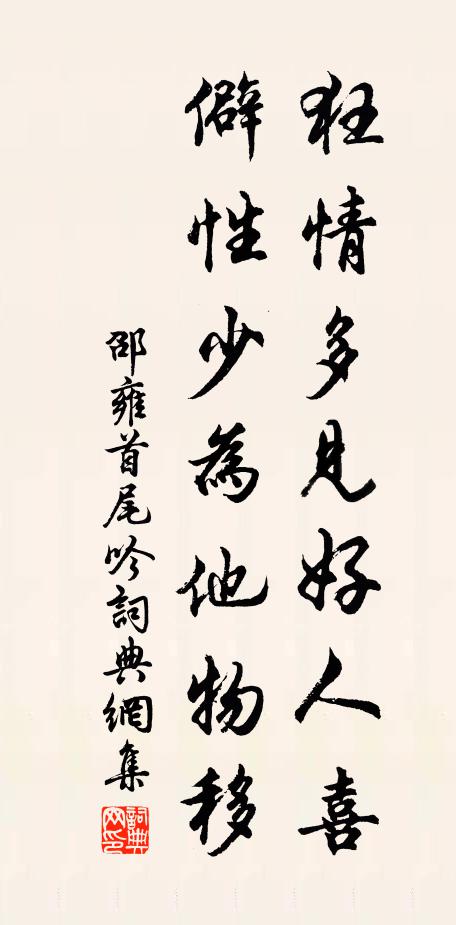 狂情多見好人喜
僻性少為他物移
邵雍首尾吟詞典網集
詞典网印